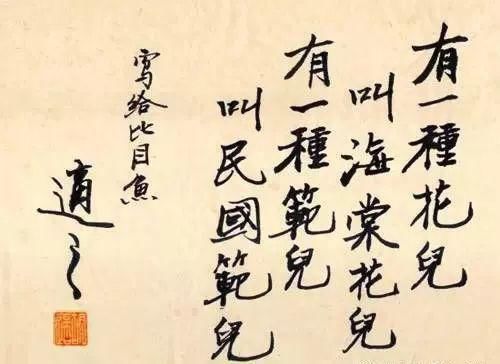 有一種花兒
叫海棠花兒
有一種範兒
叫民國範兒
寫給比目魚
適之